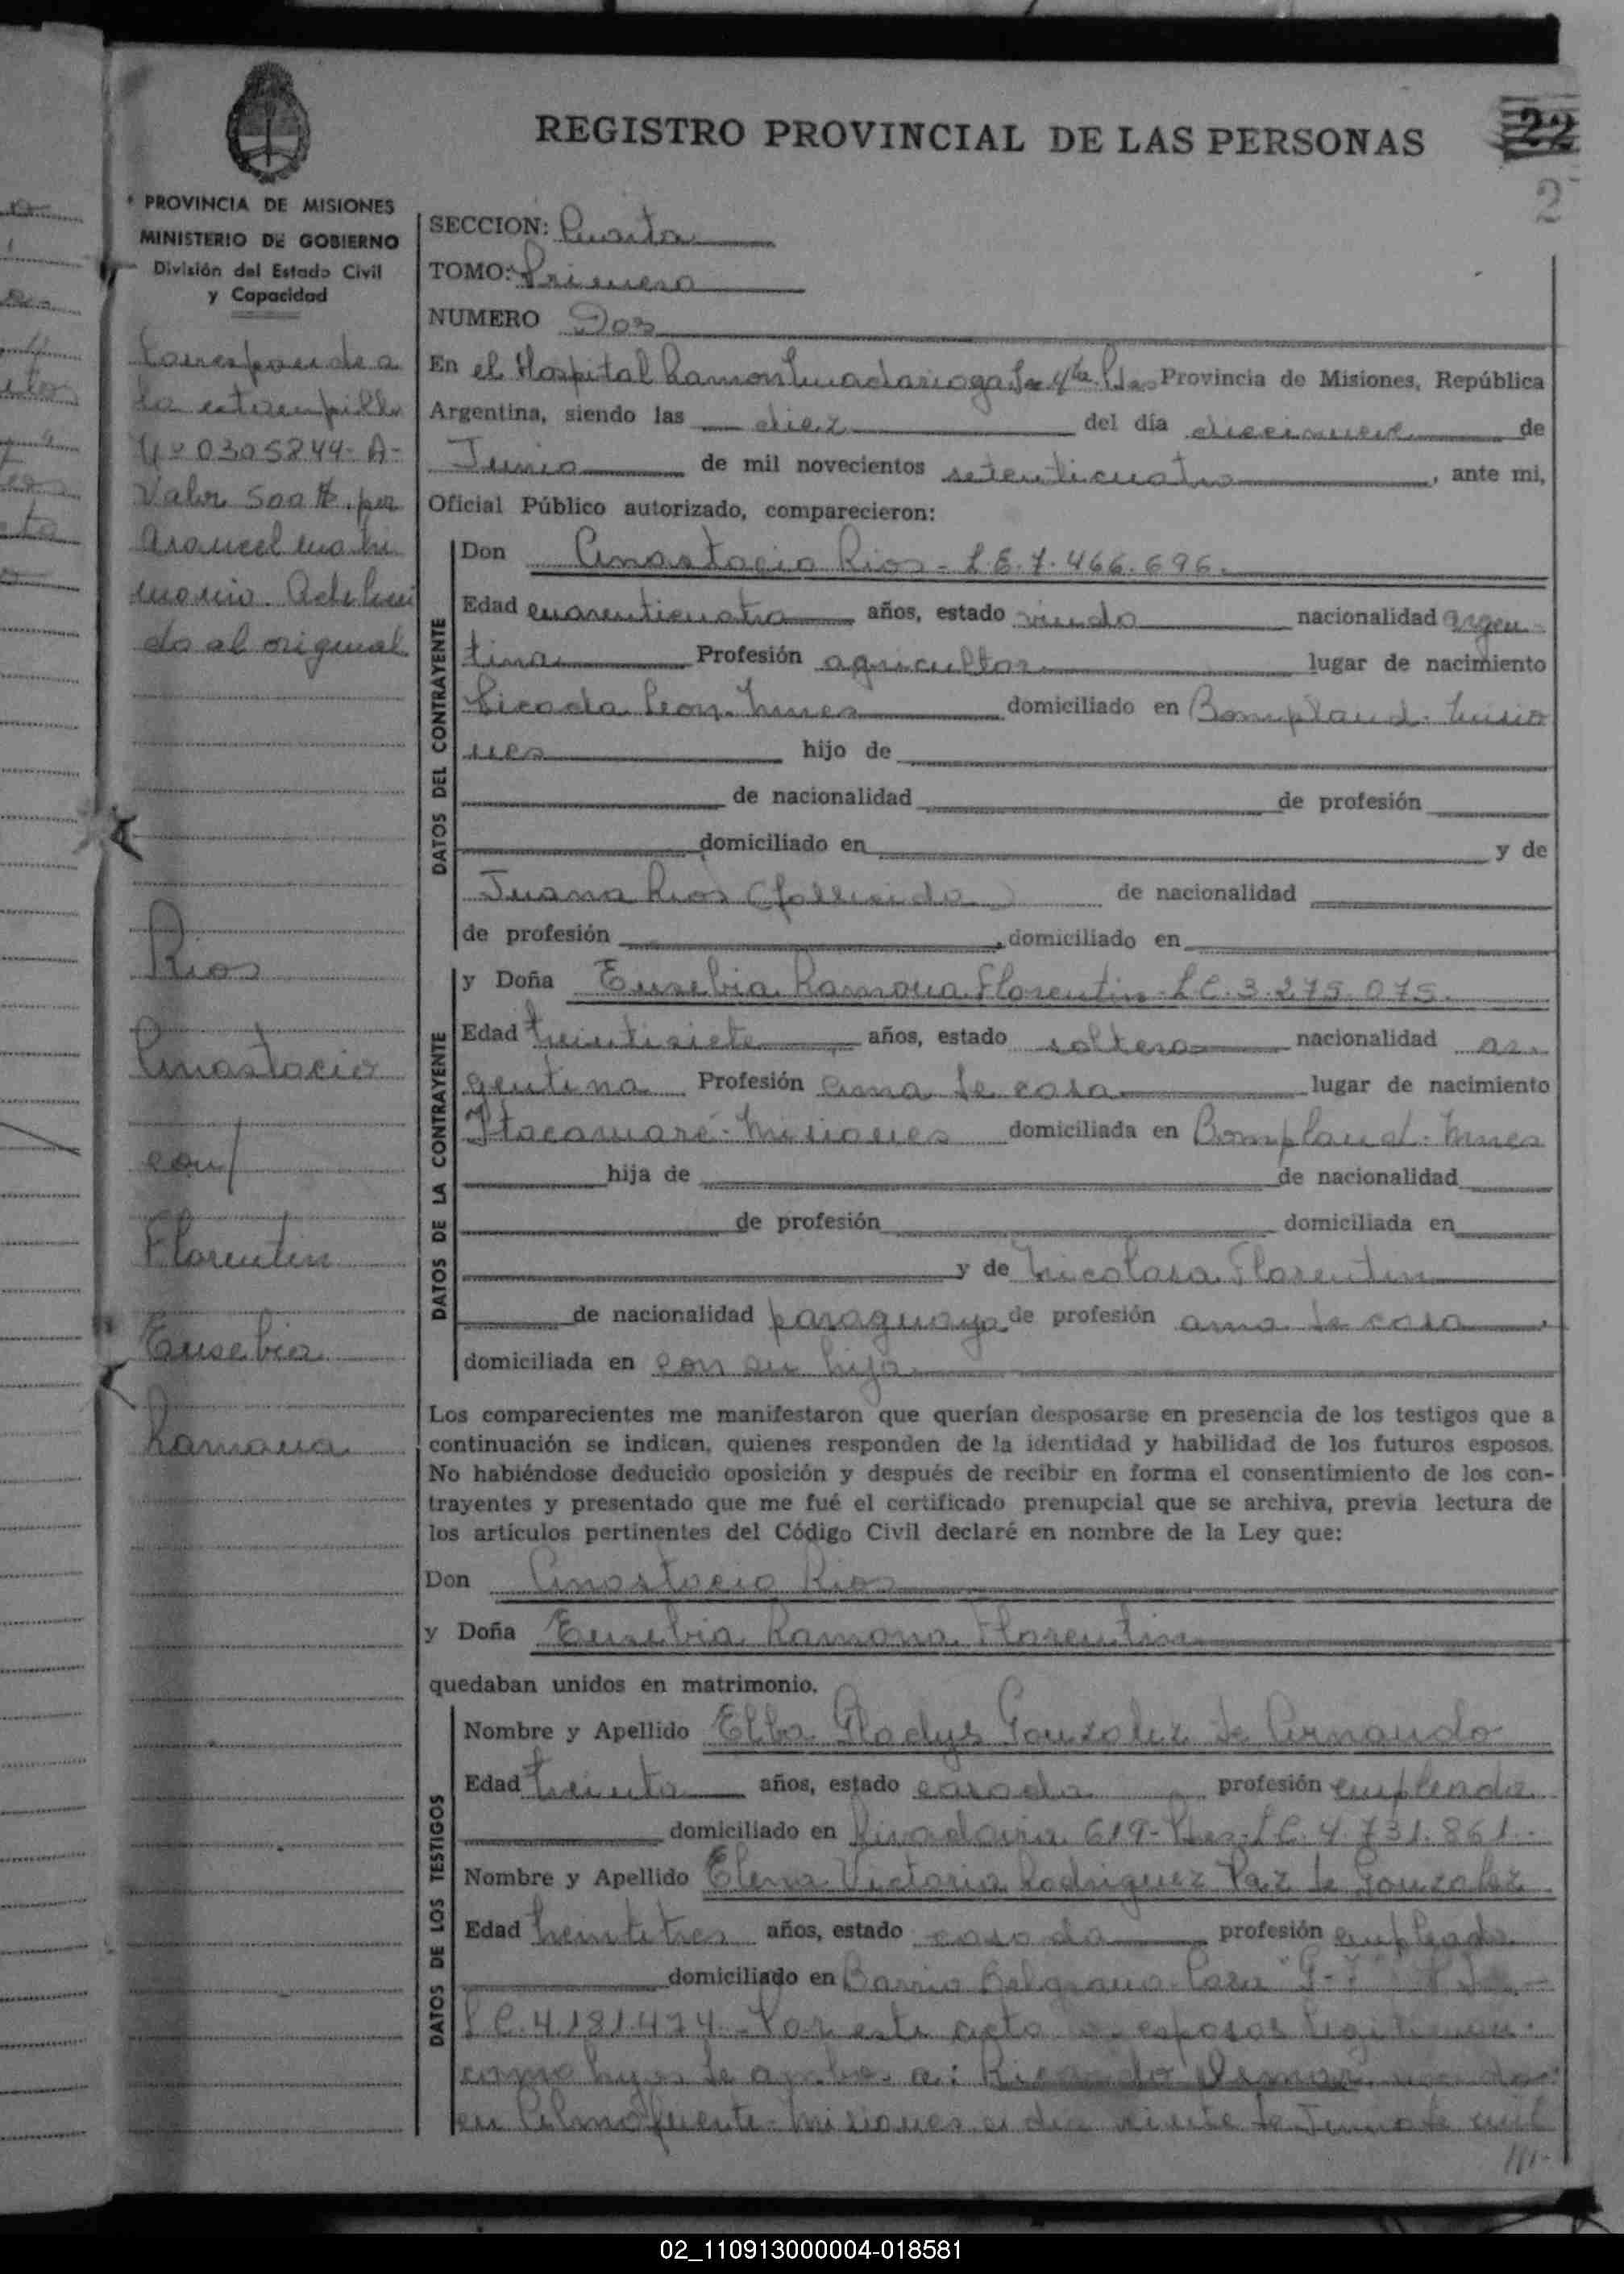 REGISTRO PROVINCIAL DE LAS PERSONAS
22
2
PROVINCIA DE MISIONES
MINISTERIO DE GOBIERNO
División del Estado Civil
y Capacidad
Corresponde a
la estampilla
Nº 0305844-A-
Valor 500 $ por
arancel matri
monio. Adheri
do al original
Rios
Anastacio
con/
Florentin
Eusebia
Ramona
SECCION: Cuarta
TOMO: Primero
NUMERO Dos
En el Hospital Ramon Madariaga Provincia de Misiones, República
Argentina, siendo las diez del día diecinueve de
Junio de mil novecientos setenticuatro, ante mi,
Oficial Público autorizado, comparecieron:
DATOS DEL CONTRAYENTE
Don Anastacio Rios - L.E. 7.466.696.
Edad cuarenticuatro años, estado viudo nacionalidad argen
tina Profesión agricultor lugar de nacimiento
Picada Leon. Mnes domiciliado en Bompland. Misio
nes hijo de
de nacionalidad de profesión
domiciliado en y de
Juana Rios (fallecida) de nacionalidad
de profesión, domiciliado en
DATOS DE LA CONTRAYENTE
y Doña Eusebia Ramona Florentin L.C. 3.275.075.
Edad treintisiete años, estado soltera nacionalidad ar
gentina Profesión ama de casa lugar de nacimiento
Itacaruaré-Misiones domiciliada en Bompland. Mnes
hija de de nacionalidad
de profesión domiciliada en
y de Nicolasa Florentin
de nacionalidad paraguaya de profesión ama de casa,
domiciliada en con su hija
Los comparecientes me manifestaron que querían desposarse en presencia de los testigos que a
continuación se indican, quienes responden de la identidad y habilidad de los futuros esposos.
No habiéndose deducido oposición y después de recibir en forma el consentimiento de los con-
trayentes y presentado que me fué el certificado prenupcial que se archiva, previa lectura de
los artículos pertinentes del Código Civil declaré en nombre de la Ley que:
Don Anastacio Rios
y Doña Eusebia Ramona Florentin
quedaban unidos en matrimonio.
DATOS DE LOS TESTIGOS
Nombre y Apellido Elba Gladys Gonzalez de Armando
Edad treinta años, estado casada profesión empleada
domiciliado en Rivadavia 619-Pdas-L.C. 4.731.861.-
Nombre y Apellido Elena Victoria Rodriguez Paz de Gonzalez
Edad treintitres años, estado casada profesión empleada
domiciliado en Barrio Belgrano. Casa
L.C. 4.181.474.- Por este acto los esposos legitiman
como hijos de ambos a: Ricardo nacido
en Almafuerte-Misiones el dia veinte de Junio de mil
///-
02_110913000004-018581